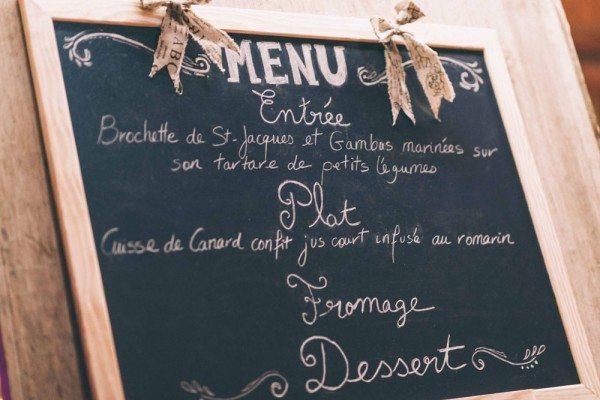 MENU
Entrée
Brochette de St-Jacques et Gambas marinées sur
son tartare de petits légumes
Plat
Cuisse de Canard confit jus court infusé au romarin
Fromage
Dessert